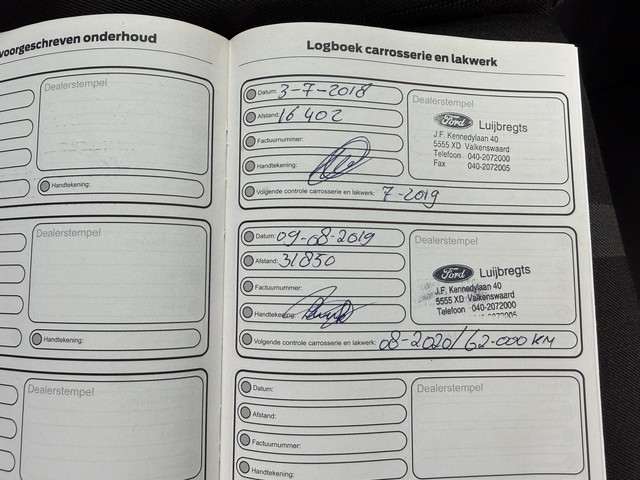 voorgeschreven onderhoud
Dealerstempel
Handtekening:
Dealerstempel
Handtekening:
Dealerstempel
Logboek carrosserie en lakwerk
Datum: 3-7-2018
Afstand: 16 402
Factuurnummer:
Handtekening:
Volgende controle carrosserie en lakwerk: 7-2019
Dealerstempel
Ford Luijbregts
J.F. Kennedylaan 40
5555 XD Valkenswaard
Telefoon 040-2072000
Fax 040-2072005
Datum: 09-08-2019
Afstand: 31850
Factuurnummer:
Handtekening:
Volgende controle carrosserie en lakwerk: 08-2020/62-000 KM
Dealerstempel
Ford Luijbregts
J.F. Kennedylaan 40
5555 XD Valkenswaard
Telefoon 040-2072000
Datum:
Afstand:
Factuurnummer:
Handtekening:
Dealerstempel